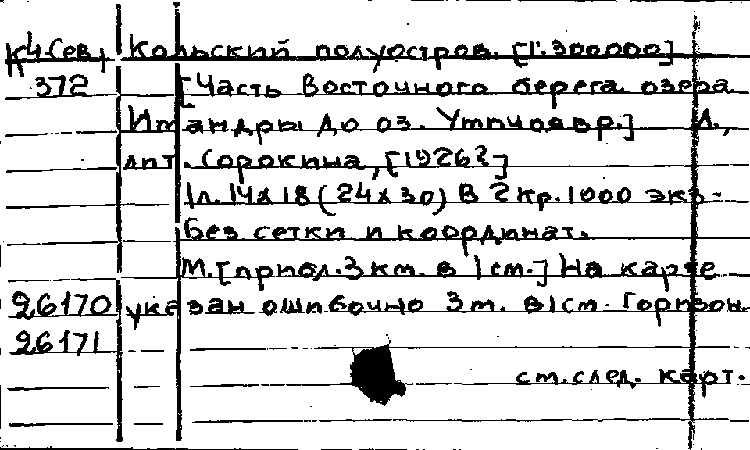 К4-Сев. Кольский полуостров. [1:300000]
372 [Часть Восточного берега озера
Имандры до оз. Умпчоявр.] Л.,
лит. Сорокина, [1926?]
1л. 14х18 (24х30) В 2 кр. 1000 экз.
Без сетки и координат.
М. [прибл. 3 км. в 1 см.] На карте
26170 указан ошибочно 3 м. в 1 см. Горизон.
26171
см. след. карт.